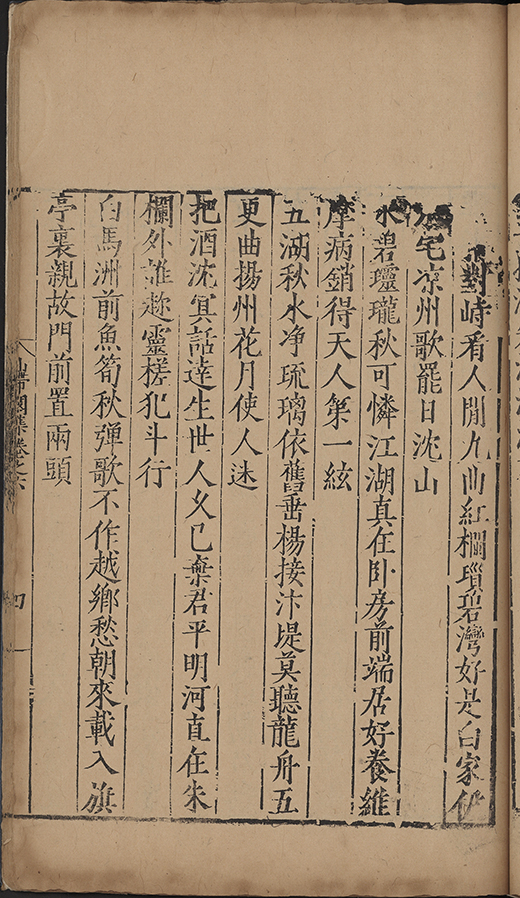 對峙看人間九曲紅欄瑣碧灣好是白家伊
宅涼州歌罷日沈山
水碧瓏瓏秋可憐江湖真在卧房前端居好養維
摩病銷得天人第一絃
五湖秋水净琉璃依舊垂楊接汴堤莫聽龍舟五
更曲揚州花月使人迷
把酒沈冥話達生世人久已棄君平明河直在朱
欄外誰趂靈槎犯斗行
白馬洲前魚筍秋彈歌不作越鄉愁朝來載入旗
亭裏親故門前置兩頭
集卷之六
四